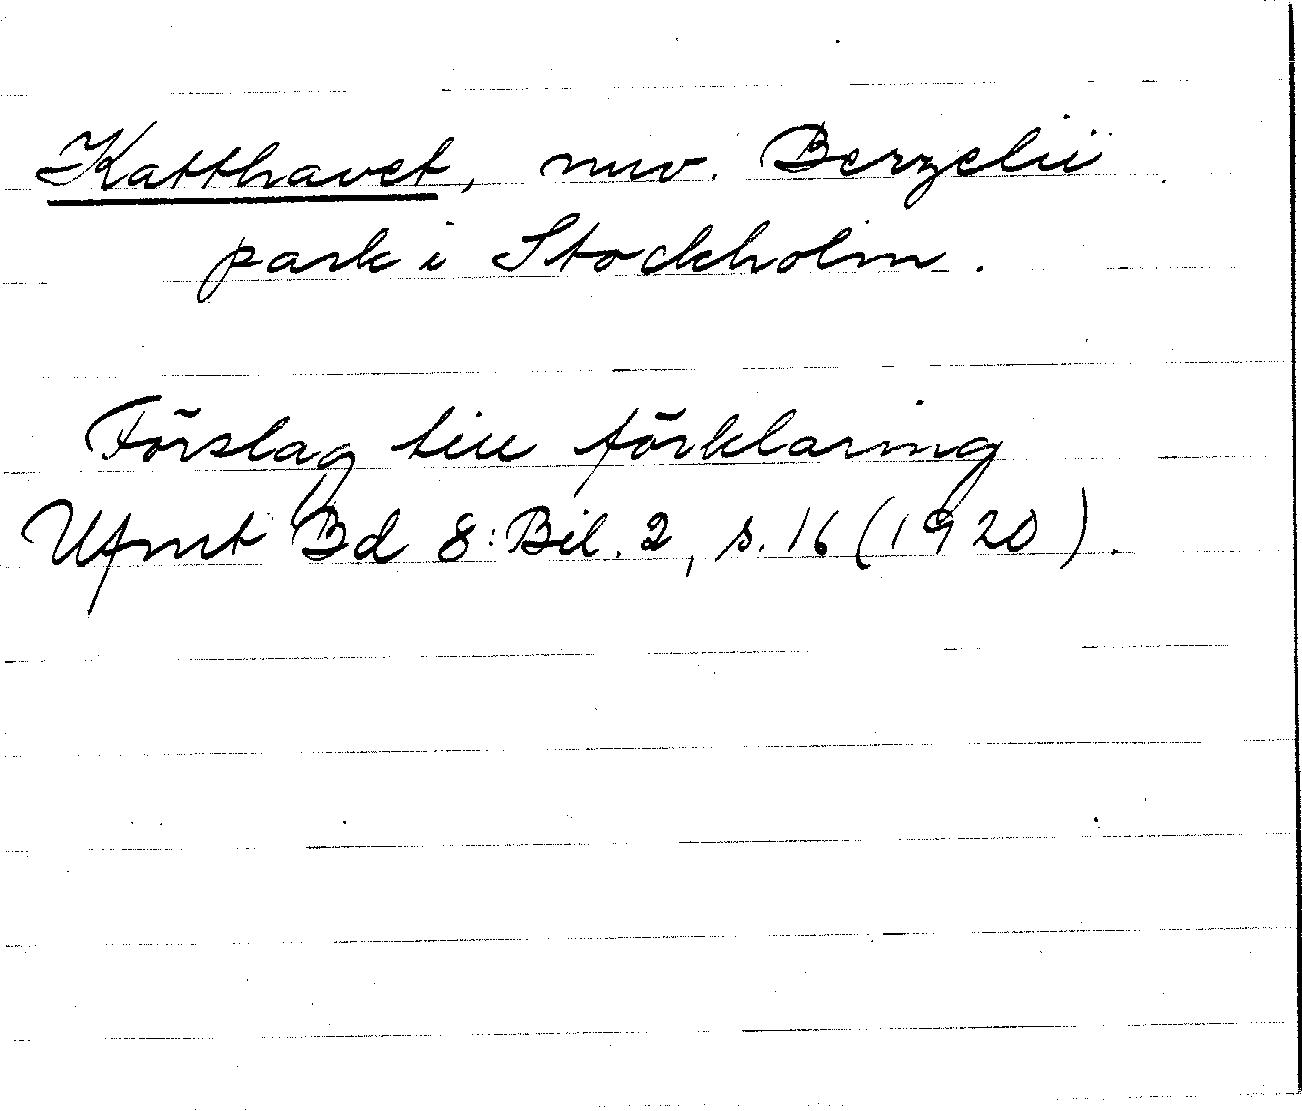 Katthavet, nuv. Berzelii
park i Stockholm.
Förslag till förklaring
Ufmt Bd 8: Bil. 2, s. 16 (1920).